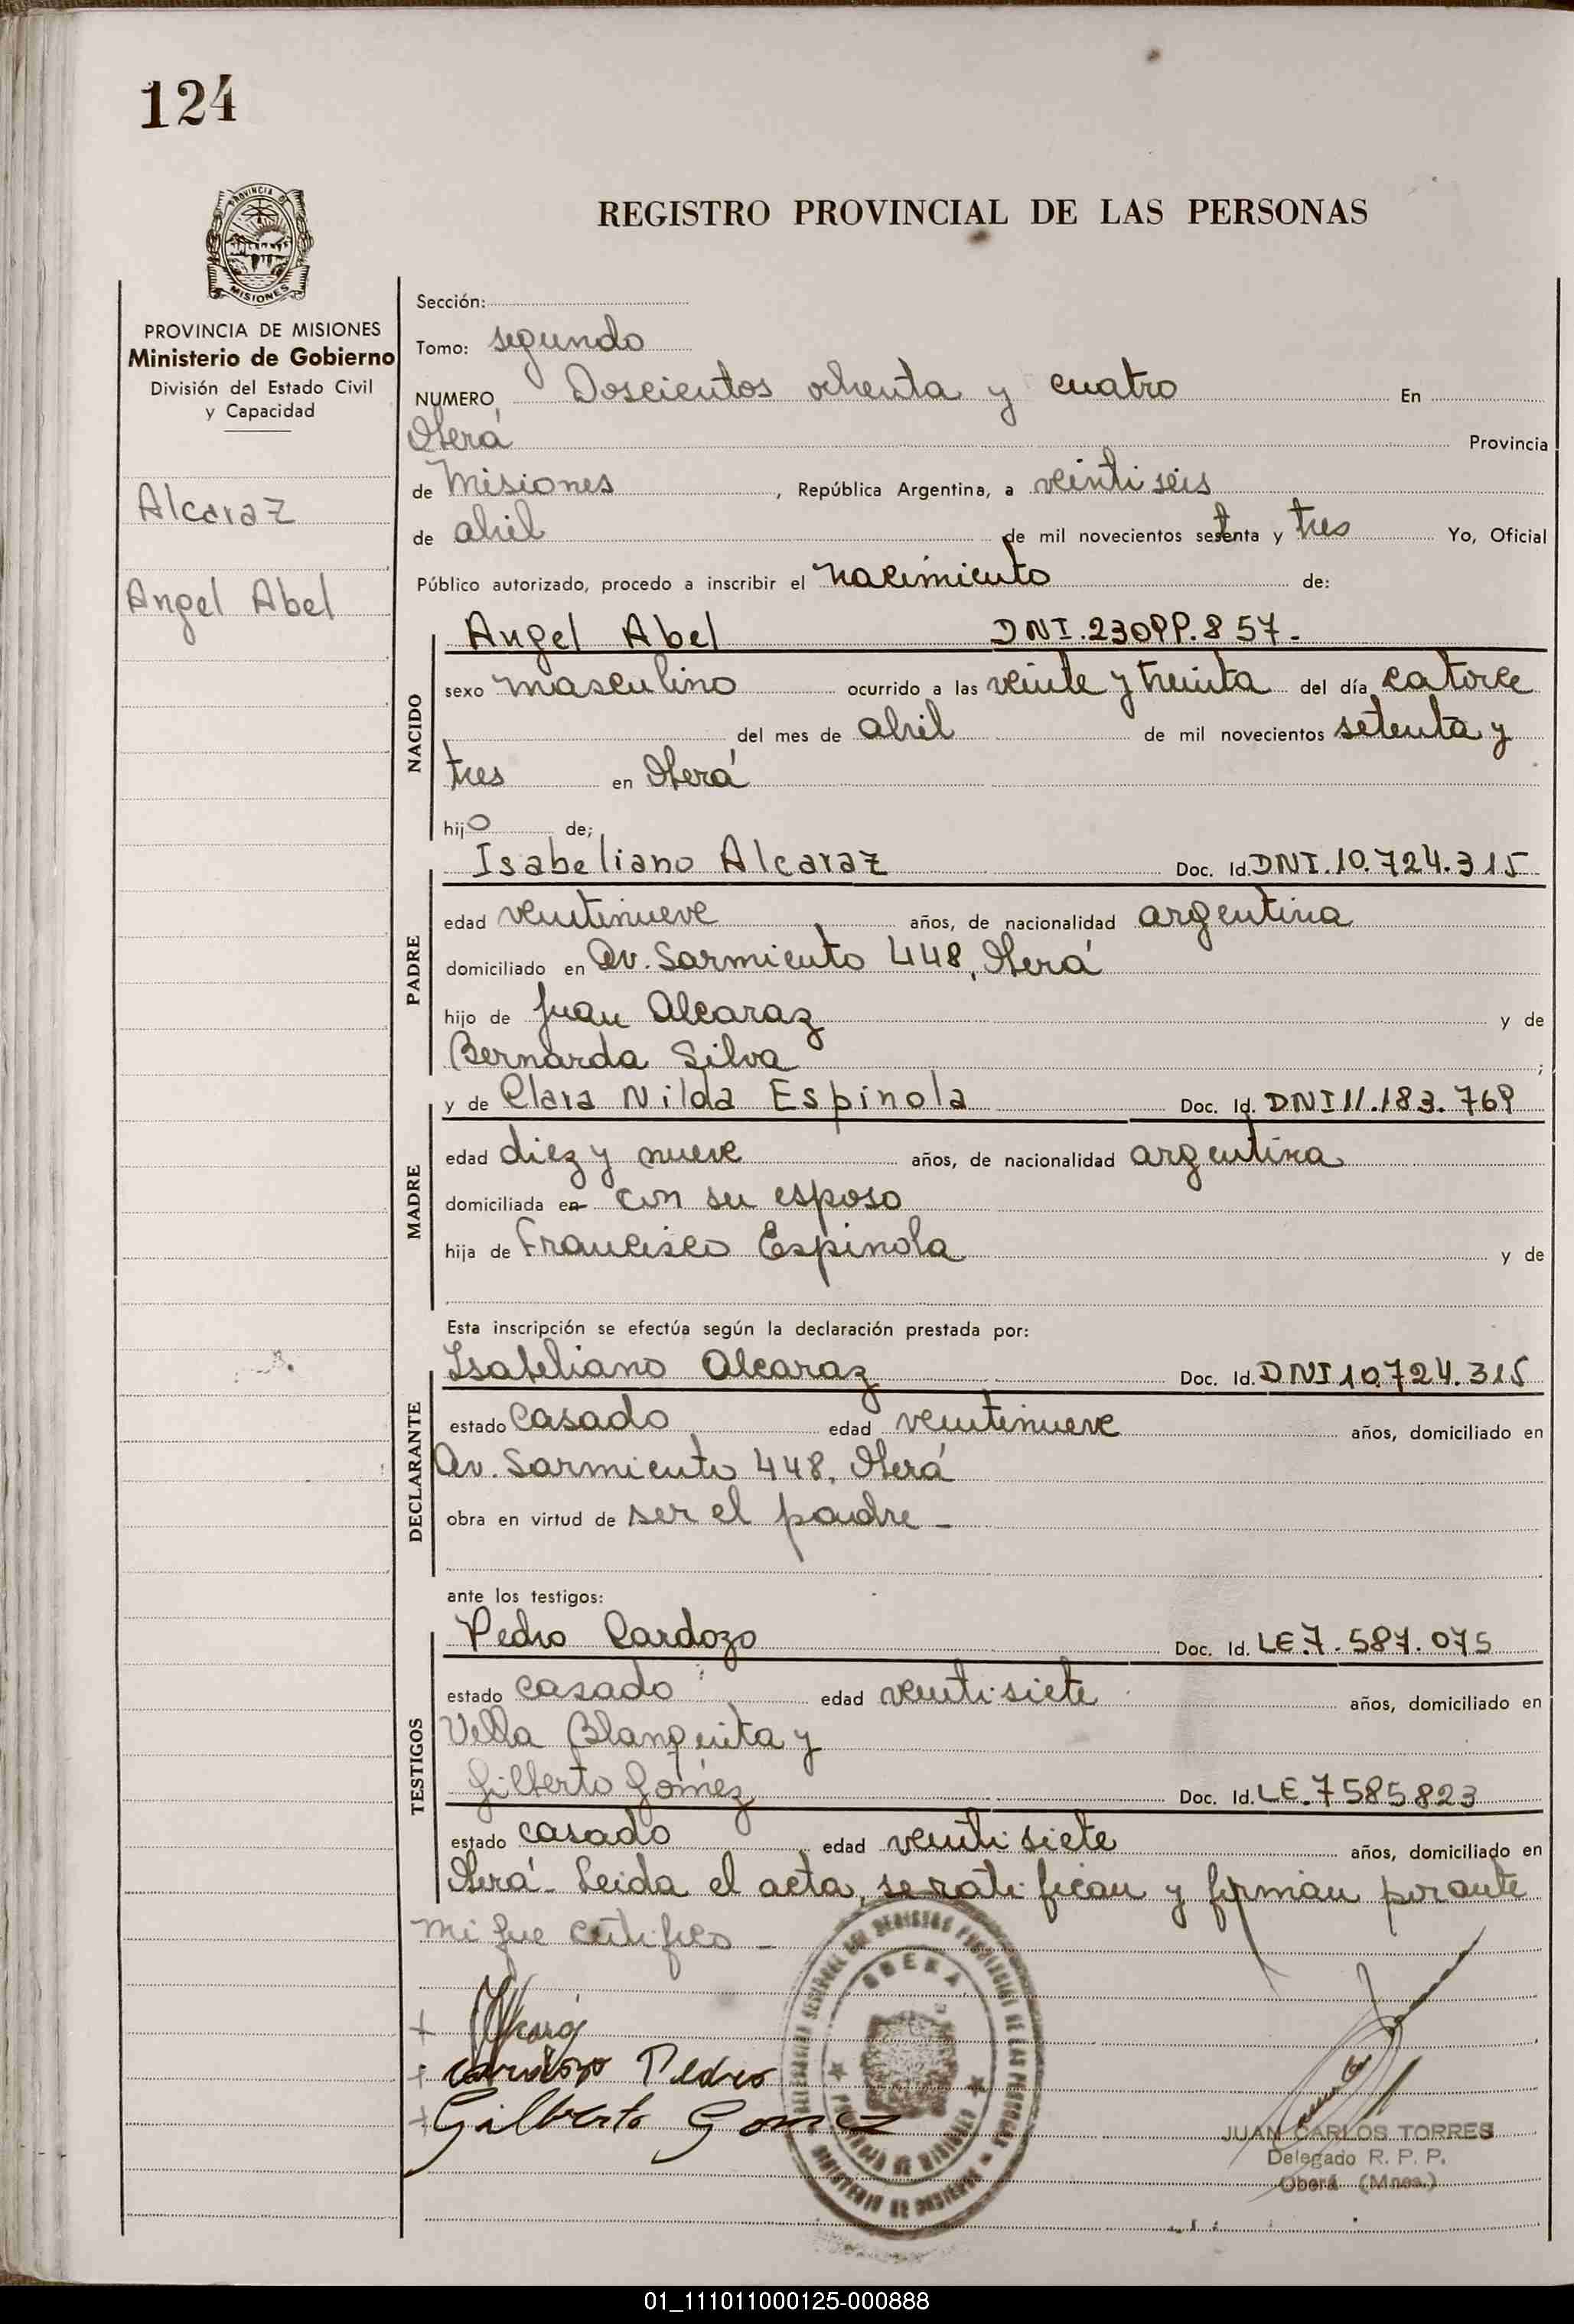 124
PROVINCIA DE
MISIONES
REGISTRO PROVINCIAL DE LAS PERSONAS
PROVINCIA DE MISIONES
Ministerio de Gobierno
División del Estado Civil
y Capacidad
Alcaraz
Angel Abel
Sección:
Tomo: segundo
NUMERO Doscientos ochenta y cuatro En
Oberá Provincia
de Misiones, República Argentina, a veinti seis
de abril de mil novecientos setenta y tres Yo, Oficial
Público autorizado, procedo a inscribir el nacimiento de:
NACIDO
Angel Abel DNI.23099.857.-
sexo masculino ocurrido a las veinte y treinta del día catorce
del mes de abril de mil novecientos setenta y
tres en Oberá
hijo de;
PADRE
Isabeliano Alcaraz Doc. Id. DNI.10.724.315
edad veintinueve años, de nacionalidad argentina
domiciliado en Av. Sarmiento 448, Oberá
hijo de Juan Alcaraz y de
Bernarda Silva ;
MADRE
y de Clara Nilda Espinola Doc. Id. DNI 11.183.769
edad diez y nueve años, de nacionalidad argentina
domiciliada en con su esposo
hija de Francisco Espinola y de
Esta inscripción se efectúa según la declaración prestada por:
DECLARANTE
Isabeliano Alcaraz Doc. Id. DNI 10.724.315
estado casado edad veintinueve años, domiciliado en
Av. Sarmiento 448, Oberá
obra en virtud de ser el padre -
ante los testigos:
TESTIGOS
Pedro Cardozo Doc. Id. LE.7.587.075
estado casado edad veinti siete años, domiciliado en
Villa Blanquita y
Gilberto Gomez Doc. Id. LE.7585.823
estado casado edad veinti siete años, domiciliado en
Oberá - Leida el acta, se ratifican y firman por ante
mi que certifico -
+
+ Cardozo Pedro
+ Gilberto Gomez
OBERA
PROVINCIA DE MISIONES
MINISTERIO DE GOBIERNO
JUAN CARLOS TORRES
Delegado R. P. P.
Oberá (Mnes.)
01_111011000125-000888